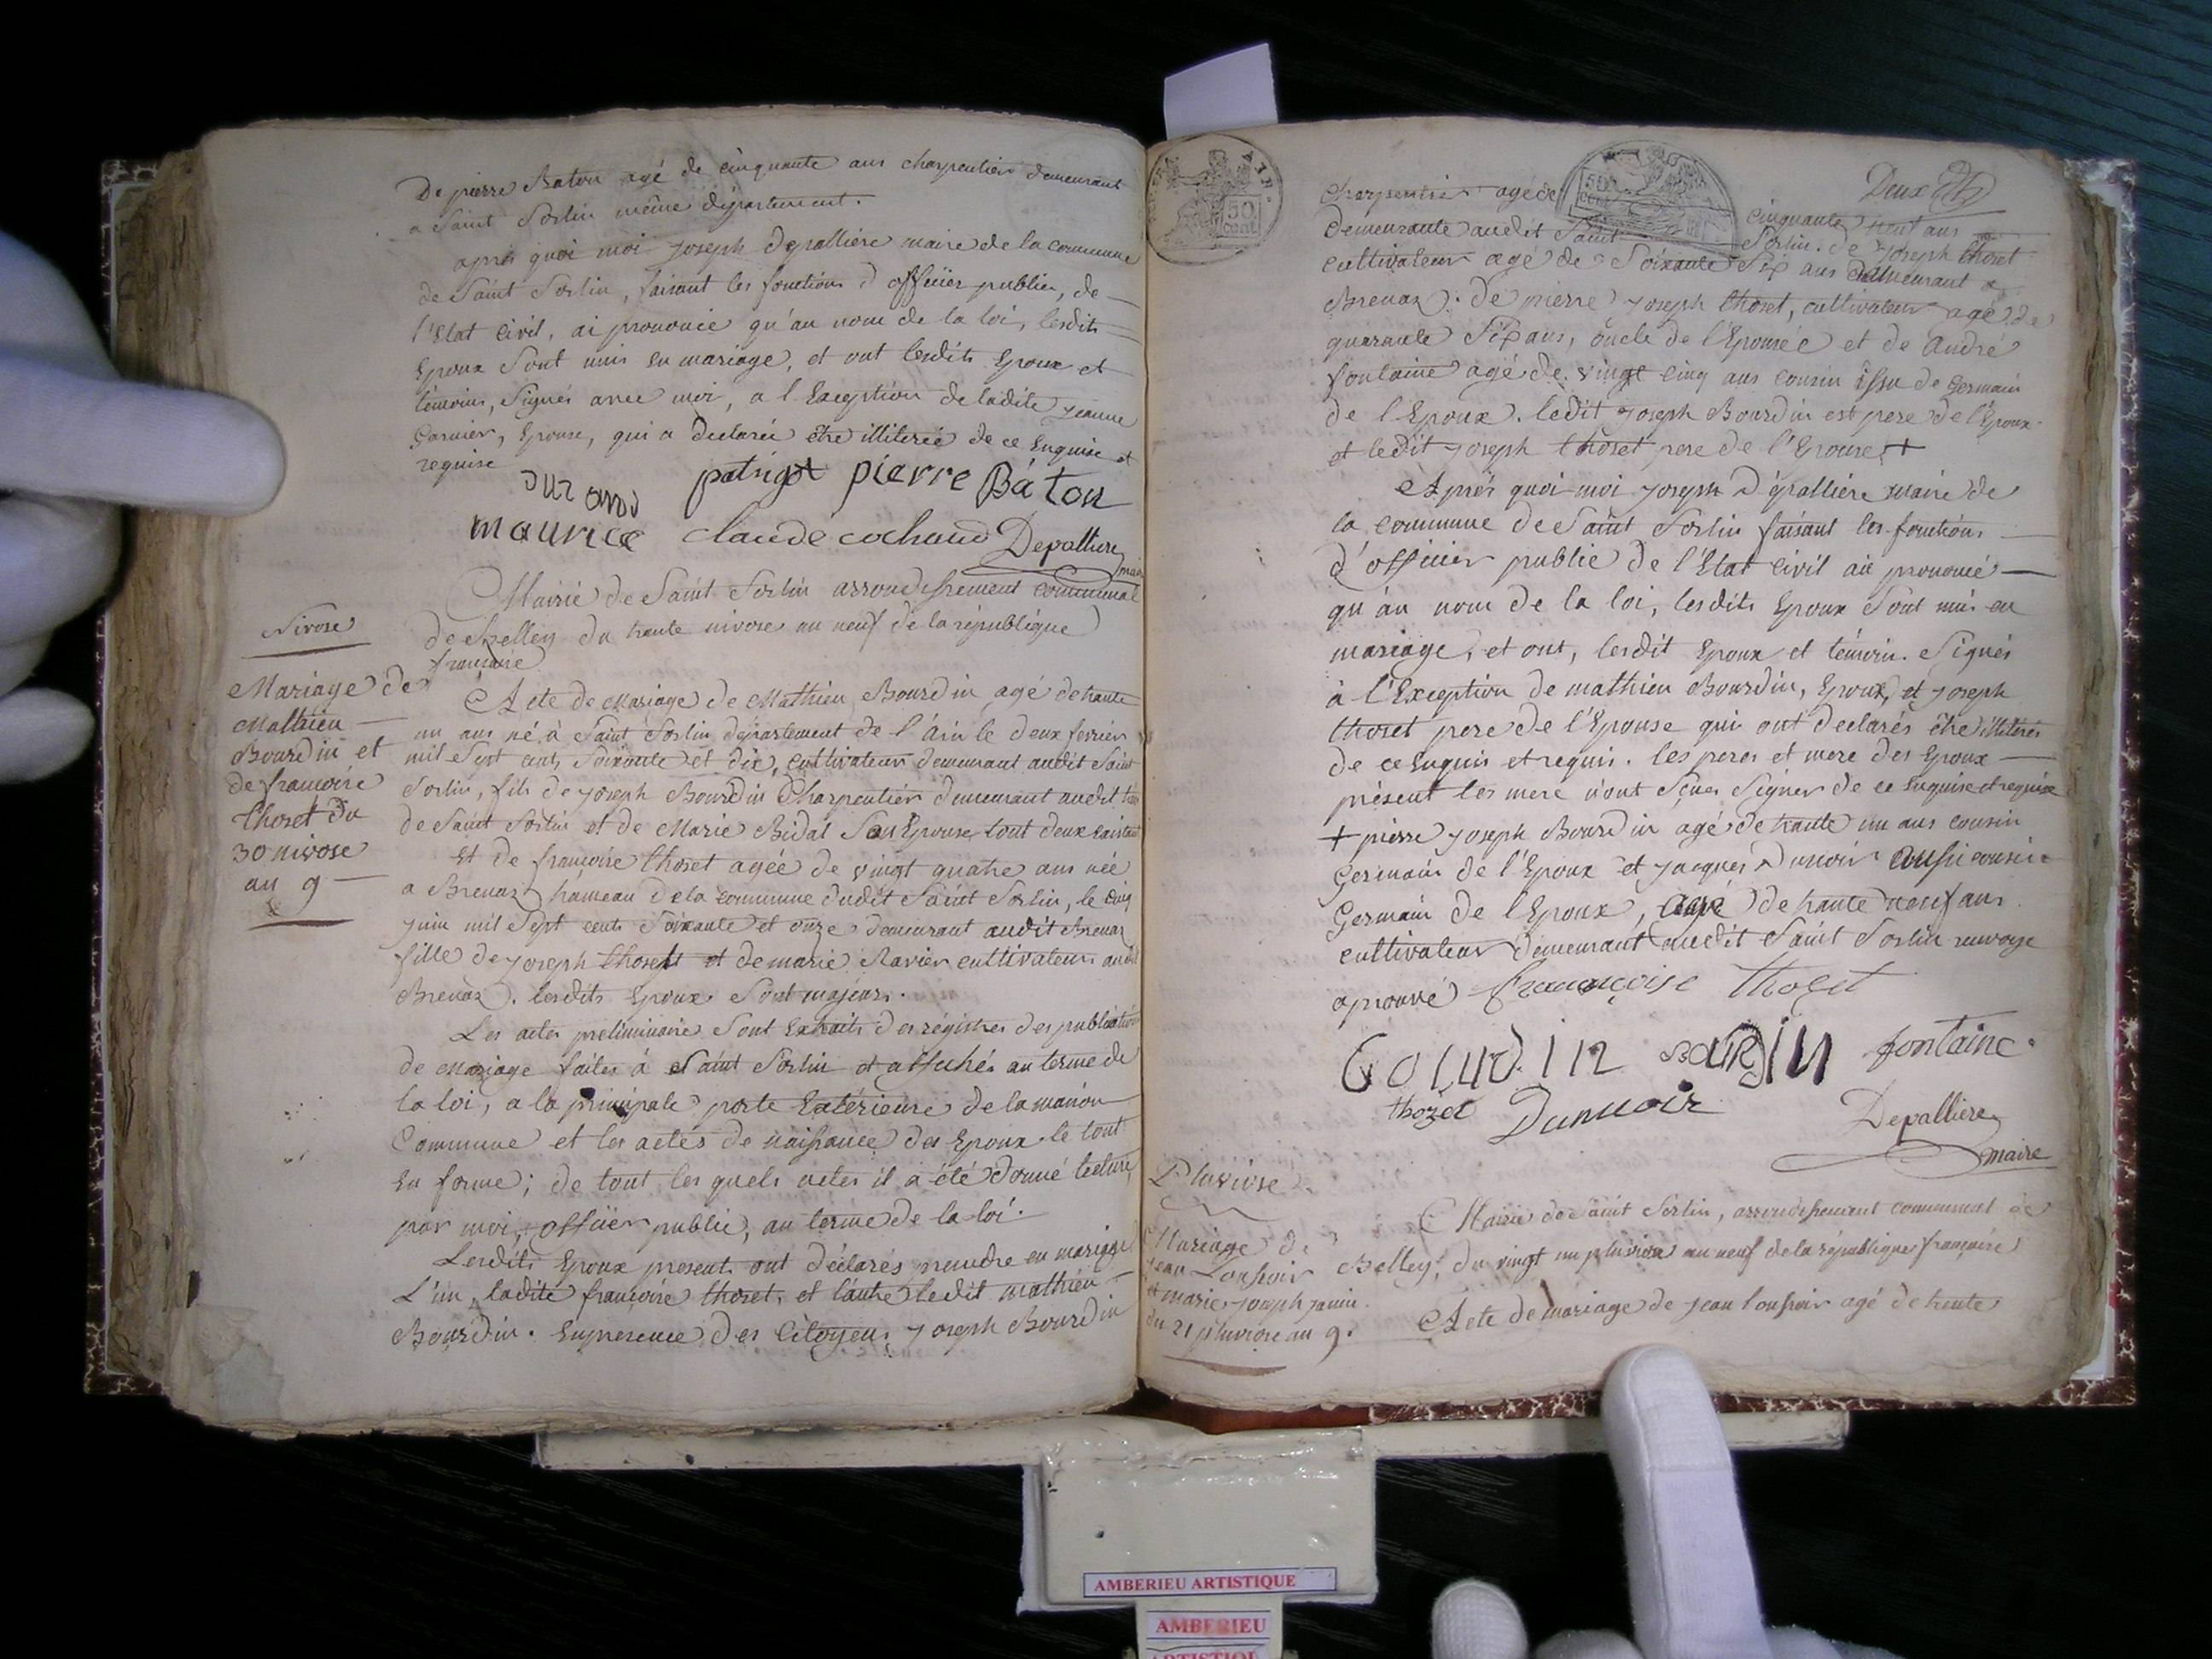 De pierre Baton agé de cinquante ans charpentier demeurant
a Saint Sorlin même département.
après quoi moi joseph Depalliere maire de la commune
de Saint Sorlin, faisant les fonctions d'officier public, de
l'Etat civil, ai prononcé qu'au nom de la loi, lesdits
Epoux sont unis en mariage, et ont lesdits Epoux et
témoins, Signés avec moi, a l'Exception de ladite jeanne
Garnier, Epouse, qui a declarée être illiterée de ce Enquise et
requise
durand patrigot pierre Báton
maurice claude cochaud Depalliere
maire
Mairie de Saint Sorlin arrondissement communal
de Belley du trente nivose an neuf de la république
française
Nivose
Mariage de
Mathieu
Bourdin et
de francoise
thoset du
30 nivose
an 9
Acte de Mariage de Mathieu Bourdin, agé de trente
un ans né à Saint Sorlin département de l'Ain le deux fevrier
mil Sept cents Soixante et dix, cultivateur demeurant audit Saint
Sorlin, fils de joseph Bourdin Charpentier demeurant audit lieu
de Saint Sorlin et de Marie Bidal Son Epouse, tout deux
Et de francoise thoset agée de vingt quatre ans née
a Brenaz hameau de la commune dudit Saint Sorlin, le cinq
juin mil Sept cents Soixante et onze demeurant audit Brenaz
fille de joseph thoset et de marie Ravier cultivateurs audit
Brenaz. lesdits Epoux Sont majeurs.
Les actes preliminaire Sont Extraits des régistres des publications
de Mariage faites à Saint Sorlin et affichés au terme de
la loi, a la principale porte Extérieure de la maison
Commune et les actes de naissance des Epoux le tout
En forme; de tout les quels actes il a été donné lecture,
par moi, officier public, au terme de la loi.
Lesdits Epoux present ont déclarés prendre en mariage
L'un ladite françoise thoset, et l'autre ledit mathieu
Bourdin. En presence des Citoyens joseph Bourdin
50 cent
50 cent
Deux
Charpentier agé de cinquante huit ans
demeurante audit Saint Sorlin. de joseph thoset
cultivateur agé de Soixante Six ans demeurant a
Brenaz. de pierre joseph thoset, cultivateur agé de
quarante Six ans, oncle de l'Epousée et de André
fontaine agé de vingt cinq ans cousin issu de Germain
de l'Epoux. ledit joseph Bourdin est pere de l'Epoux
et ledit joseph thoset pere de l'Epouse. +
Après quoi moi joseph Depalliere maire de
la commune de Saint Sorlin faisant les fonctions
d'officier public de l'Etat civil ai prononcé
qu'au nom de la loi, lesdits Epoux Sont unis en
mariage, et ont, lesdit Epoux et témoin. Signés
à l'Exception de mathieu Bourdin, Epoux, et joseph
thoset pere de l'Epouse qui ont declarés être illiterés
de ce Enquis et requis. les peres et mere des Epoux
présent les mere n'ont Sçues Signer de ce Enquise et requise
+ pierre joseph Bourdin agé de trente un ans cousin
Germain de l'Epoux et jacques Dunoir aussi cousin
Germain de l'Epoux, agé de trente neuf ans
cultivateur demeurant audit Saint Sorlin renvoye
aprouvé françoise thoset
fontaine
thozet Dunuoir Depalliere
maire
Pluviose
Mariage de
jean Loupoir
et marie joseph janin
du 21 pluviose an 9.
Mairie de Saint Sorlin, arrondissement communal de
Belley, du vingt un pluviose an neuf de la république française
Acte de mariage de jean loupoir agé de trente
AMBERIEU ARTISTIQUE
AMBERIEU
ARTISTIQUE